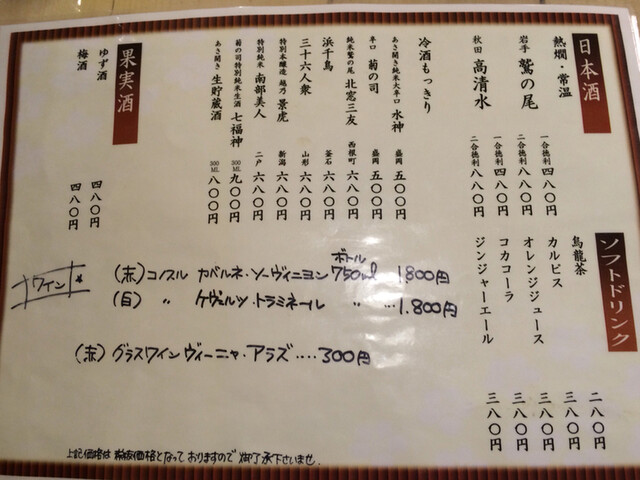 日本酒
熱燗・常温
岩手 鷲の尾 一合徳利 四八〇円
二合徳利 八八〇円
秋田 高清水 一合徳利 四八〇円
二合徳利 八八〇円
冷酒もっきり
あさ開き純米大辛口 水神 盛岡 五〇〇円
辛口 菊の司 盛岡 五〇〇円
純米鷲の尾 北窓三友 西根町 六八〇円
浜千鳥 釜石 六八〇円
三十六人衆 山形 六八〇円
特別本醸造 越乃 景虎 新潟 六八〇円
特別純米 南部美人 二戸 六八〇円
菊の司特別純米生酒 七福神 300ML 九〇〇円
あさ開き 生貯蔵酒 300ML 八〇〇円
果実酒
ゆず酒 四八〇円
梅酒 四八〇円
ソフトドリンク
烏龍茶 二八〇円
カルピス 三八〇円
オレンジジュース 三八〇円
コカコーラ 三八〇円
ジンジャーエール 三八〇円
ワイン
(赤) コノスル カベルネ・ソーヴィニヨン ボトル 750ml 1,800円
(白) 〃 ゲヴェルツ・トラミネール 〃 ‥ 1,800円
(赤) グラスワイン ヴィーニャ・アラズ‥‥300円
上記価格は税抜価格となっておりますので御了承下さいませ.